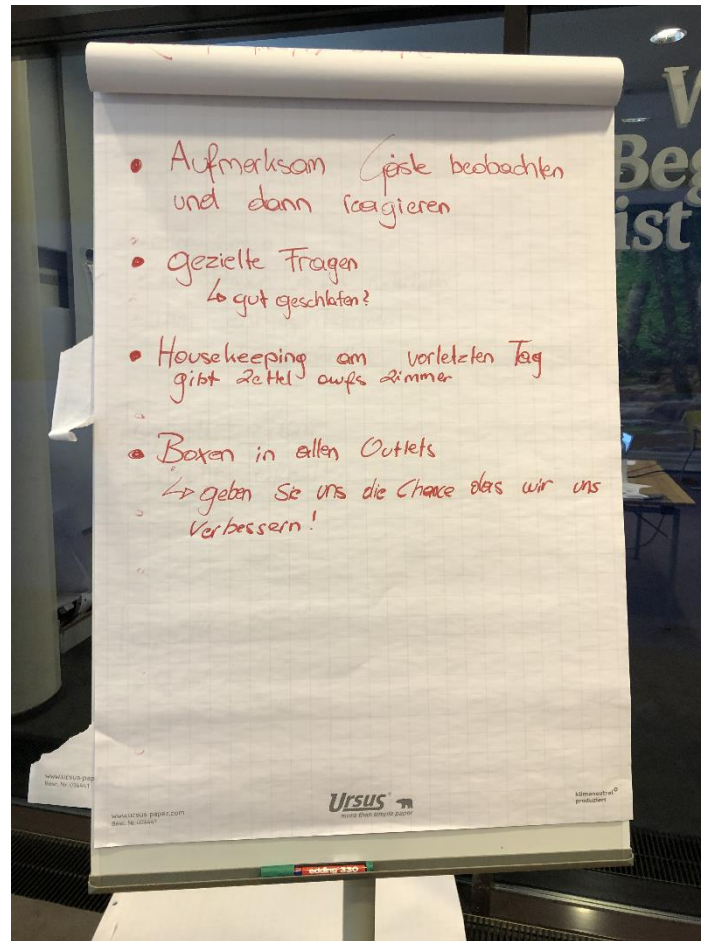 • Aufmerksam Gäste beobachten
und dann reagieren
• gezielte Fragen
↳ gut geschlafen?
• Housekeeping am vorletzten Tag
gibt Zettel aufs Zimmer
• Boxen in allen Outlets
↳ geben Sie uns die Chance das wir uns
verbessern!
www.ursus-paper.com
www.ursus-paper.com
Ursus
more than simple paper
klimaneutral
produziert
edding 330
Beg
ist